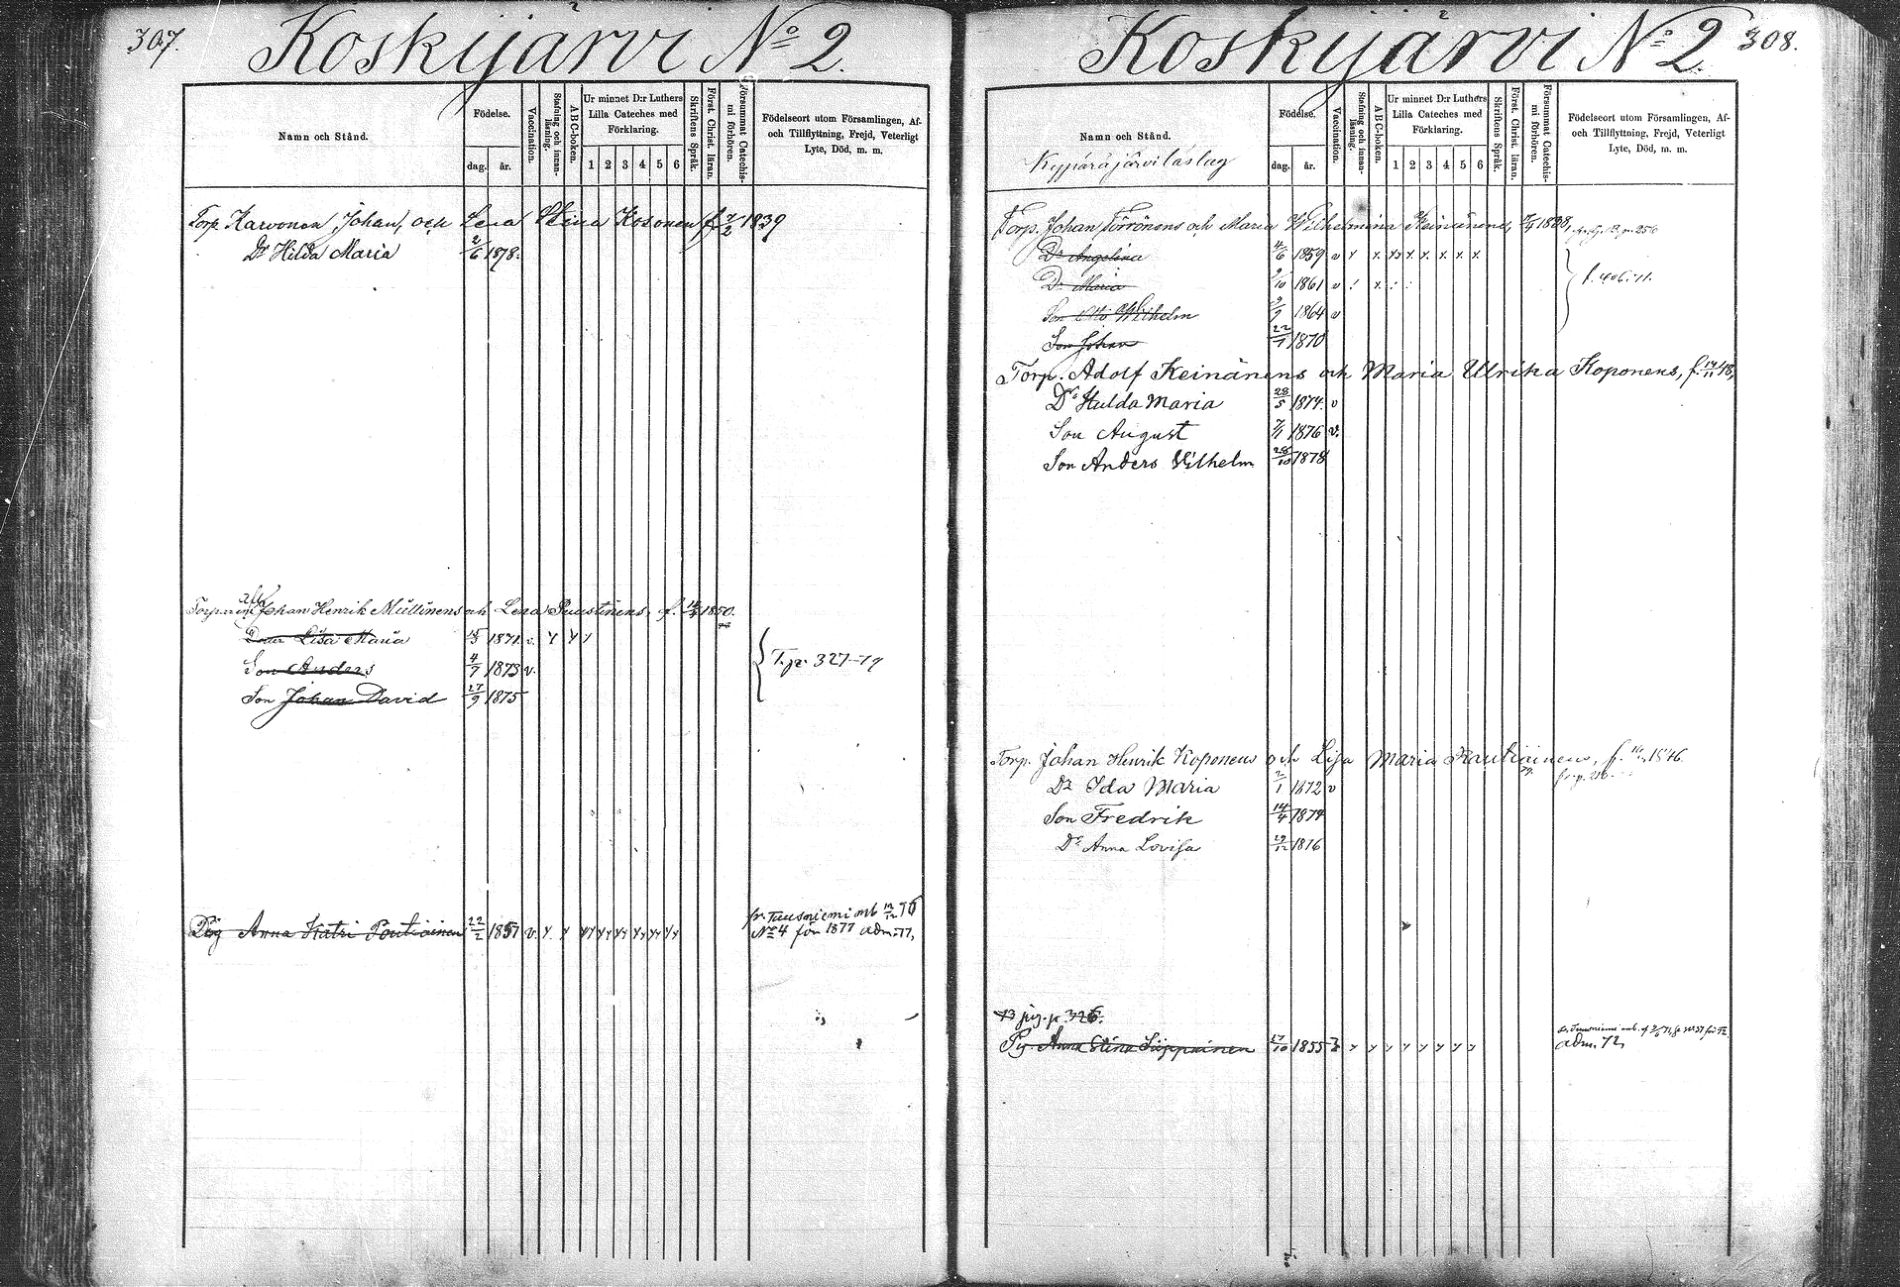 307.
Koskijärvi No 2.
Namn och Stånd.
Födelse.
dag. år.
Vaccination.
Stafning och innan-läsning.
ABC-boken.
Ur minnet D:r Luthers Lilla Cateches med Förklaring.
1 2 3 4 5 6
Skriftens Språk.
Först. Christ. läran.
Försummat Catechis-mi förhören.
Födelseort utom Församlingen, Af- och Tillflyttning, Frejd, Veterligt Lyte, Död, m. m.
Torp. Karvonen, Johan, och Lena Stina Kosonen f. 7/2 1839
Dr Hilda Maria 2/6 1878.
Johan Henrik Mullinens och Lena Puustinens, f. 1850.
Dotter Lisa Maria 1871 v.
Son Anders 4/7 1873 v.
Son Johan David 27/9 1875
T. p. 327-
Pig Anna Katri Pontiainen 22/2 1857 v.
fr. Tuusniemi mb 12/12 76
No 4 för 1877 adm. 77,
308.
Koskijärvi No 2.
Namn och Stånd.
Kypäräjärvilåslag
Födelse.
dag. år.
Vaccination.
Stafning och innan-läsning.
ABC-boken.
Ur minnet D:r Luthers Lilla Cateches med Förklaring.
1 2 3 4 5 6
Skriftens Språk.
Först. Christ. läran.
Försummat Catechis-mi förhören.
Födelseort utom Församlingen, Af- och Tillflyttning, Frejd, Veterligt Lyte, Död, m. m.
Torp. Johan Törrönens och Maria Wilhelmina Keinänens, 1838,
Dr Angelina 4/6 1859 v
Dr Maria 9/10 1861 v
Son Otto Wilhelm 9/9 1864 v
Son Johan 22/1 1870
Torp. Adolf Keinänens och Maria Ulrika Koponens, f. 14/11 48,
Dr Hulda Maria 28/5 1874. v
Son August 7/1 1876 v.
Son Anders Vilhelm 28/10 1878
Torp. Johan Henrik Koponens och Lisa Maria Rautiainens, f. 1846.
Dr Ida Maria 2/1 1872 v
Son Fredrik 14/4 1874
Dr Anna Lovisa 29/12 1876
pig. p. 326.
Pg Anna Stina Säppainen 27/10 1855
adm. 72,